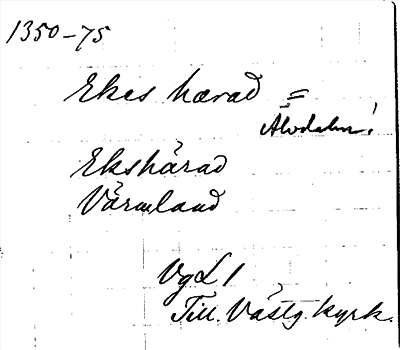 1350-75
Ekes hærað =
Älvdalen!
Ekshärad
Värmland
VgL 1
Till. Västg. kyrk.